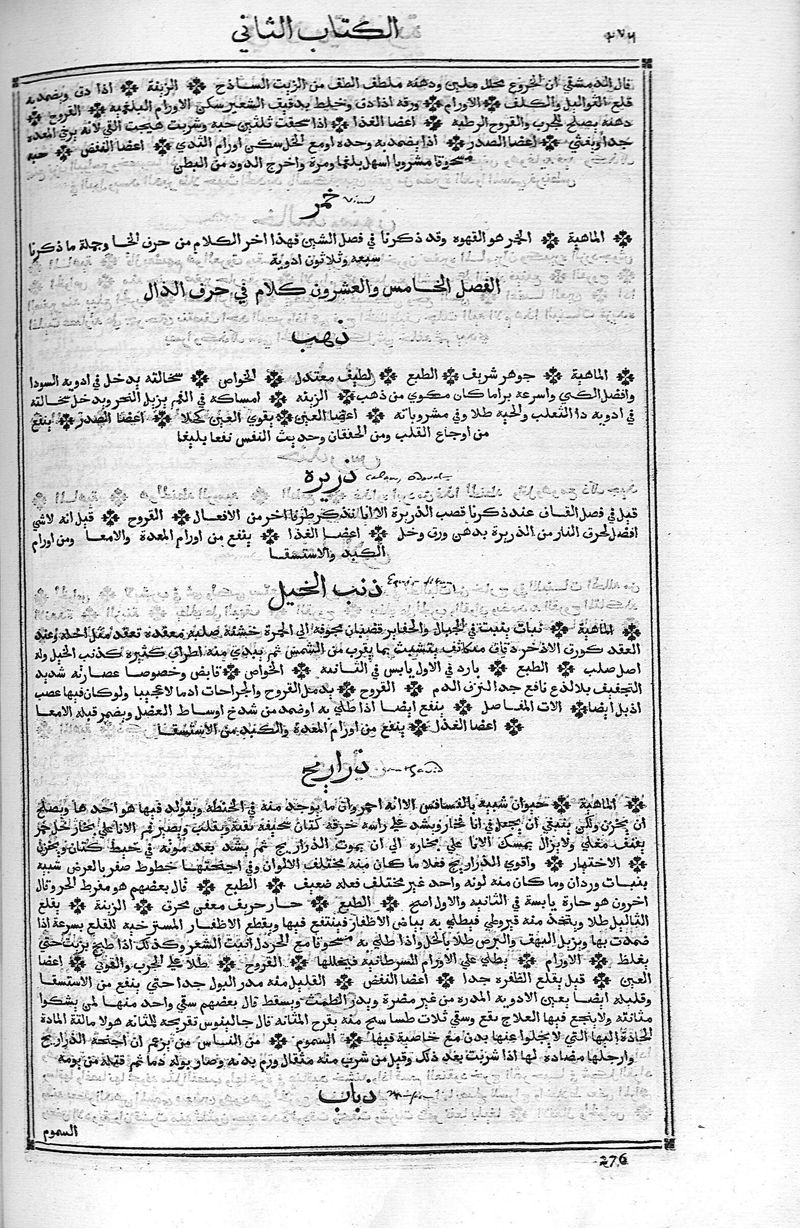 الكتاب الثاني
٢٧٦
قال الدمشقي ان الخروع محلل ملين ودهنه ملطف الطف من الزيت الساذج الزينة اذا دق وضمد به
قلع الثواليل والكلف الاورام ورقه اذا دق وخلط بدقيق الشعير سكن الاورام البلغمية القروح
دهنه يصلح للجرب والقروح الرطبه اعضا الغذا اذا سحقت ثلثين حبه وشربت هيجت القي لانه يرخي المعده
جدا ويغثي اعضا الصدر اذا يضمد به وحده او مع الخل سكن اورام الثدي اعضا النفض حبه
مسحوقا مشروبا اسهل بلغما ومرة واخرج الدود من البطن
خمر
الماهية الخمر هو القهوه وقد ذكرنا في فصل الشين فهذا اخر الكلام من حرف الخا وجملة ما ذكرنا
سبعه وثلاثون ادوية
الفصل الخامس والعشرون كلام في حرف الذال
ذهب
الماهية جوهر شريف الطبع لطيف معتدل الخواص سحالته يدخل في ادويه السودا
وافضل الكي واسرعه برا ما كان مكوي من ذهب الزينه امساكه في الفم يزيل البخر ويدخل سحالته
في ادويه دا الثعلب والحيه طلا وفي مشروباته اعضا العين يقوي العين كحلا اعضا الصدر ينفع
من اوجاع القلب ومن الخفقان وحديث النفس نفعا بليغا
ذريرة
قيل في فصل القاف عند ذكرنا قصب الذريرة الا انا نذكر طرفا اخر من الافعال القروح قيل انه لاشي
افضل لحرق النار من الذريرة بدهن ورق وخل اعضا الغذا ينفع من اورام المعدة والامعا ومن اورام
الكبد والاستسقا
ذنب الخيل
الماهية نبات ينبت في الجبال والحفاير قضبان مجوفه الى الحمرة خشنة صلبه معقده تعقد متداخله وعند
العقد كورق الاذخر دقاق متكاثف يتشبث بما يقرب من الشمس ثم يبتدي منه اطراف كثيره كذنب الخيل وله
اصل صلب الطبع بارد في الاول يابس في الثانيه الخواص قابض وخصوصا عصارته شديد
التجفيف بلا لذع نافع جدا لنزف الدم القروح يدمل القروح والجراحات ادمالا عجيبا ولو كان فيها عصب
الات المفاصل ينفع ايضا اذا طلي به او ضمد من شدخ اوساط العضل ويضمر قيله الامعا
اعضا الغذا ينفع من اورام المعدة والكبد من الاستسقا
ذراريح
الماهية حيوان شبيه بالفسافس الا انه احمر وان ما يوجد منه في الحنطه ويتولد فيها هو اجدها ويصلح
ان يخزن ولكن ينبغي ان يجعل في انا فخار ويشد على راسه خرقه كتان سخيفه نقية ويقلب ويصير فم الانا على بخار خل خمر
ثقيف مغلي ولا يزال يمسك الانا على بخاره الى ان يموت الذراريح ثم يشد بعد موته في خيط كتان ويخزن
الاختيار واقوي الذراريح فعلا ما كان منه مختلف الالوان وفي اجنحتها خطوط صفر بالعرض شبيه
بنبات وردان وما كان منه لونه واحد غير مختلف فعله ضعيف الطبع قال بعضهم هو مفرط الحر وقال
اخرون هو حارة يابسة في الثانيه والاول اصح الطبع حار حريف معفن محرق الزينة يقلع
الثاليل طلا ويتخذ منه قيروطي فيطلي به بياض الاظفار فينتفع فيها ويقطع الاظفار المسترخيه للقلع بسرعة اذا
ضمدت بها ويزيل البهق والبرص طلا بالخل واذا طلي به مسحوقا مع الخردل انبت الشعر وكذلك اذا طبخ بزيت حتي
يغلظ الاورام يطلي علي الاورام السرطانيه فيحللها القروح طلا علي الجرب والقوبي اعضا
العين قيل يقلع الظفره جدا اعضا النفض القليل منه مدر البول جدا حتي ينفع من الاستسقا
وقليله ايضا يعين الادويه المدره من غير مضرة ويدر الطمث ويسقط قال بعضهم سقي واحد منها لمن يشكوا
مثانته ولا ينجع فيها العلاج نفع وسقي ثلات طساسيج منه يقرح المثانه قال جالينوس تقريحه للمثانه هو لا مالتة المادة
الحادة اليها التي لا يخلوا عنها بدن مع خاصية فيها السموم من الناس من يزعم ان اجنحة الذراريح
وارجلها مضادة لها اذا شربت بعد ذلك وقيل من شرب منه مثقال ورم بدنه وصار بوله دما ثم قتله من يومه
ذباب
السموم
276